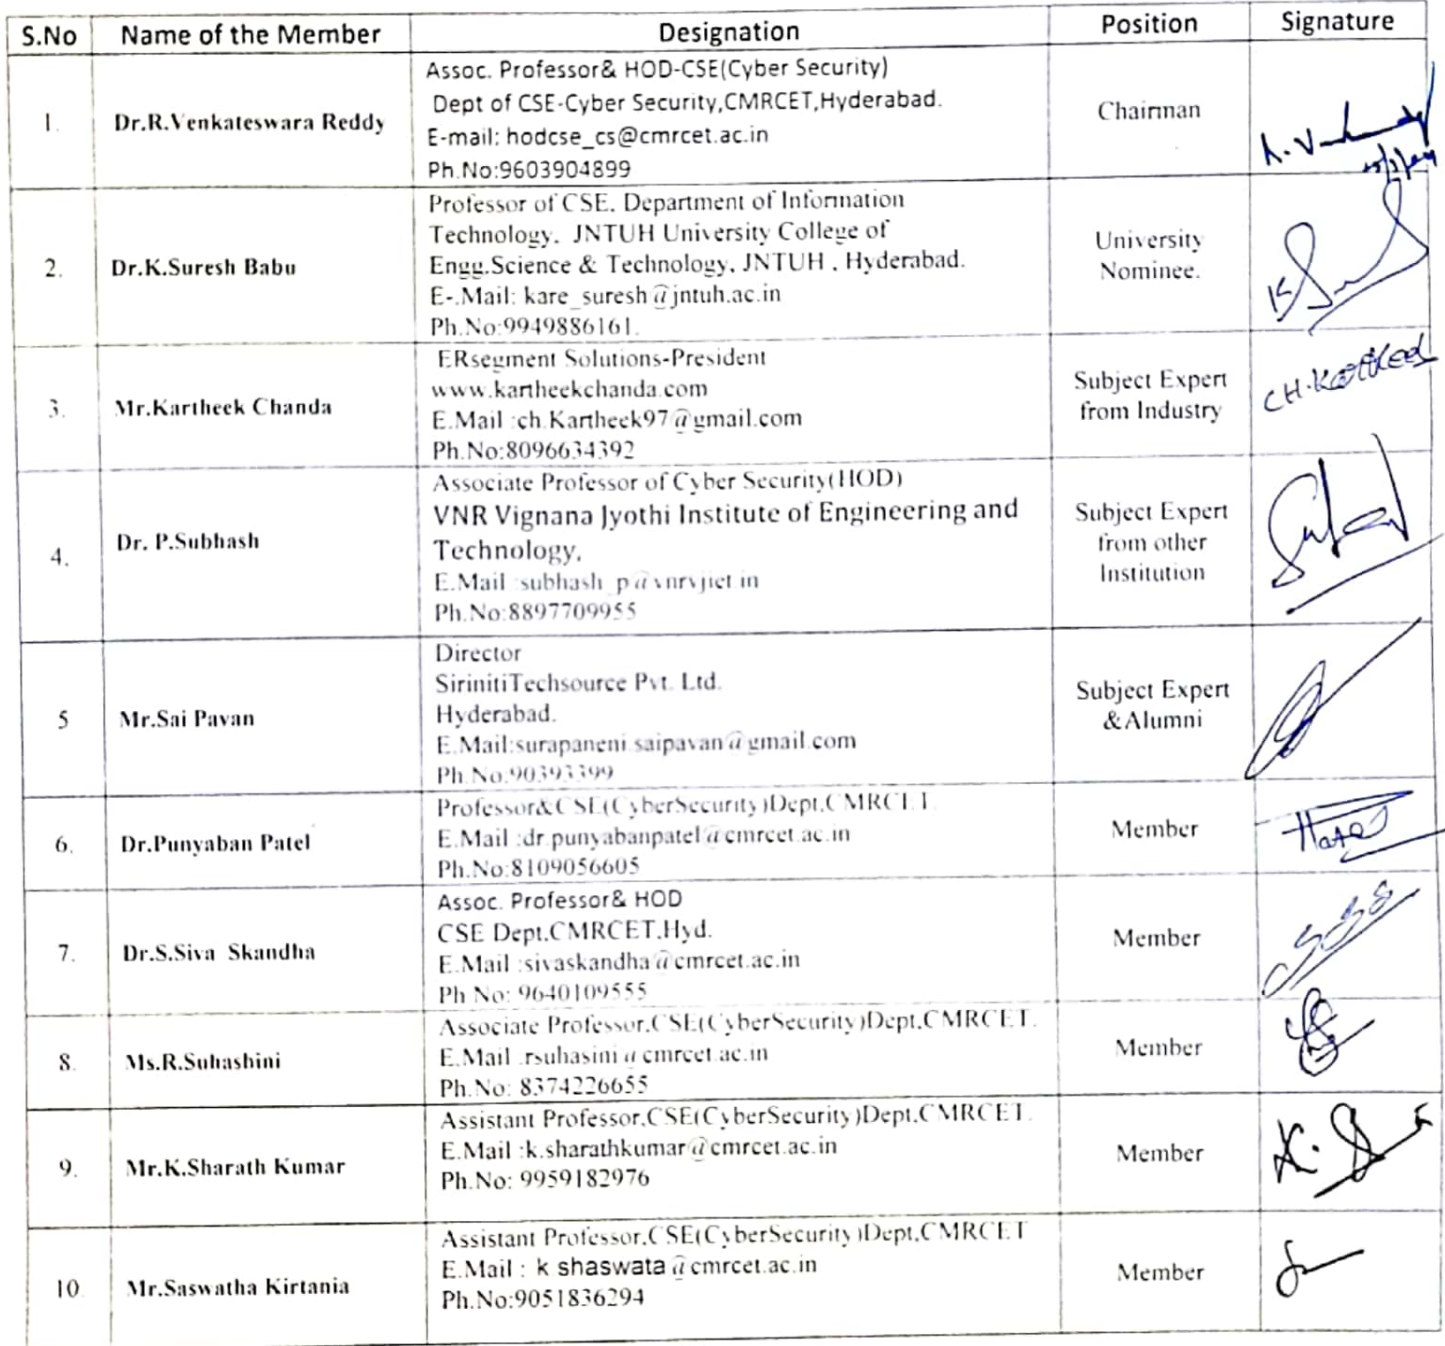 S.No Name of the Member Designation Position Signature
1. Dr.R.Venkateswara Reddy
Assoc. Professor& HOD-CSE(Cyber Security)
Dept of CSE-Cyber Security,CMRCET,Hyderabad.
E-mail: hodcse_cs@cmrcet.ac.in
Ph.No:9603904899
Chairman
2. Dr.K.Suresh Babu
Professor of CSE, Department of Information
Technology, JNTUH University College of
Engg.Science & Technology, JNTUH , Hyderabad.
E-.Mail: kare_suresh@jntuh.ac.in
Ph.No:9949886161.
University
Nominee.
3. Mr.Kartheek Chanda
ERsegment Solutions-President
www.kartheekchanda.com
E.Mail :ch.Kartheek97@gmail.com
Ph.No:8096634392
Subject Expert
from Industry
CH.Kartheek
4. Dr. P.Subhash
Associate Professor of Cyber Security(HOD)
VNR Vignana Jyothi Institute of Engineering and
Technology,
E.Mail :subhash_p@vnrvjiet.in
Ph.No:8897709955
Subject Expert
from other
Institution
5 Mr.Sai Pavan
Director
SirinitiTechsource Pvt. Ltd.
Hyderabad.
E.Mail:surapaneni.saipavan@gmail.com
Ph.No:90393399
Subject Expert
&Alumni
6. Dr.Punyaban Patel
Professor&CSE(CyberSecurity)Dept,CMRCET.
E.Mail :dr.punyabanpatel@cmrcet.ac.in
Ph.No:8109056605
Member
7. Dr.S.Siva Skandha
Assoc. Professor& HOD
CSE Dept,CMRCET,Hyd.
E.Mail :sivaskandha@cmrcet.ac.in
Ph No: 9640109555
Member
8. Ms.R.Suhashini
Associate Professor,CSE(CyberSecurity)Dept,CMRCET.
E.Mail :rsuhasini@cmrcet.ac.in
Ph.No: 8374226655
Member
9. Mr.K.Sharath Kumar
Assistant Professor,CSE(CyberSecurity)Dept,CMRCET.
E.Mail :k.sharathkumar@cmrcet.ac.in
Ph.No: 9959182976
Member
10. Mr.Saswatha Kirtania
Assistant Professor,CSE(CyberSecurity)Dept,CMRCET
E.Mail : k shaswata@cmrcet.ac.in
Ph.No:9051836294
Member